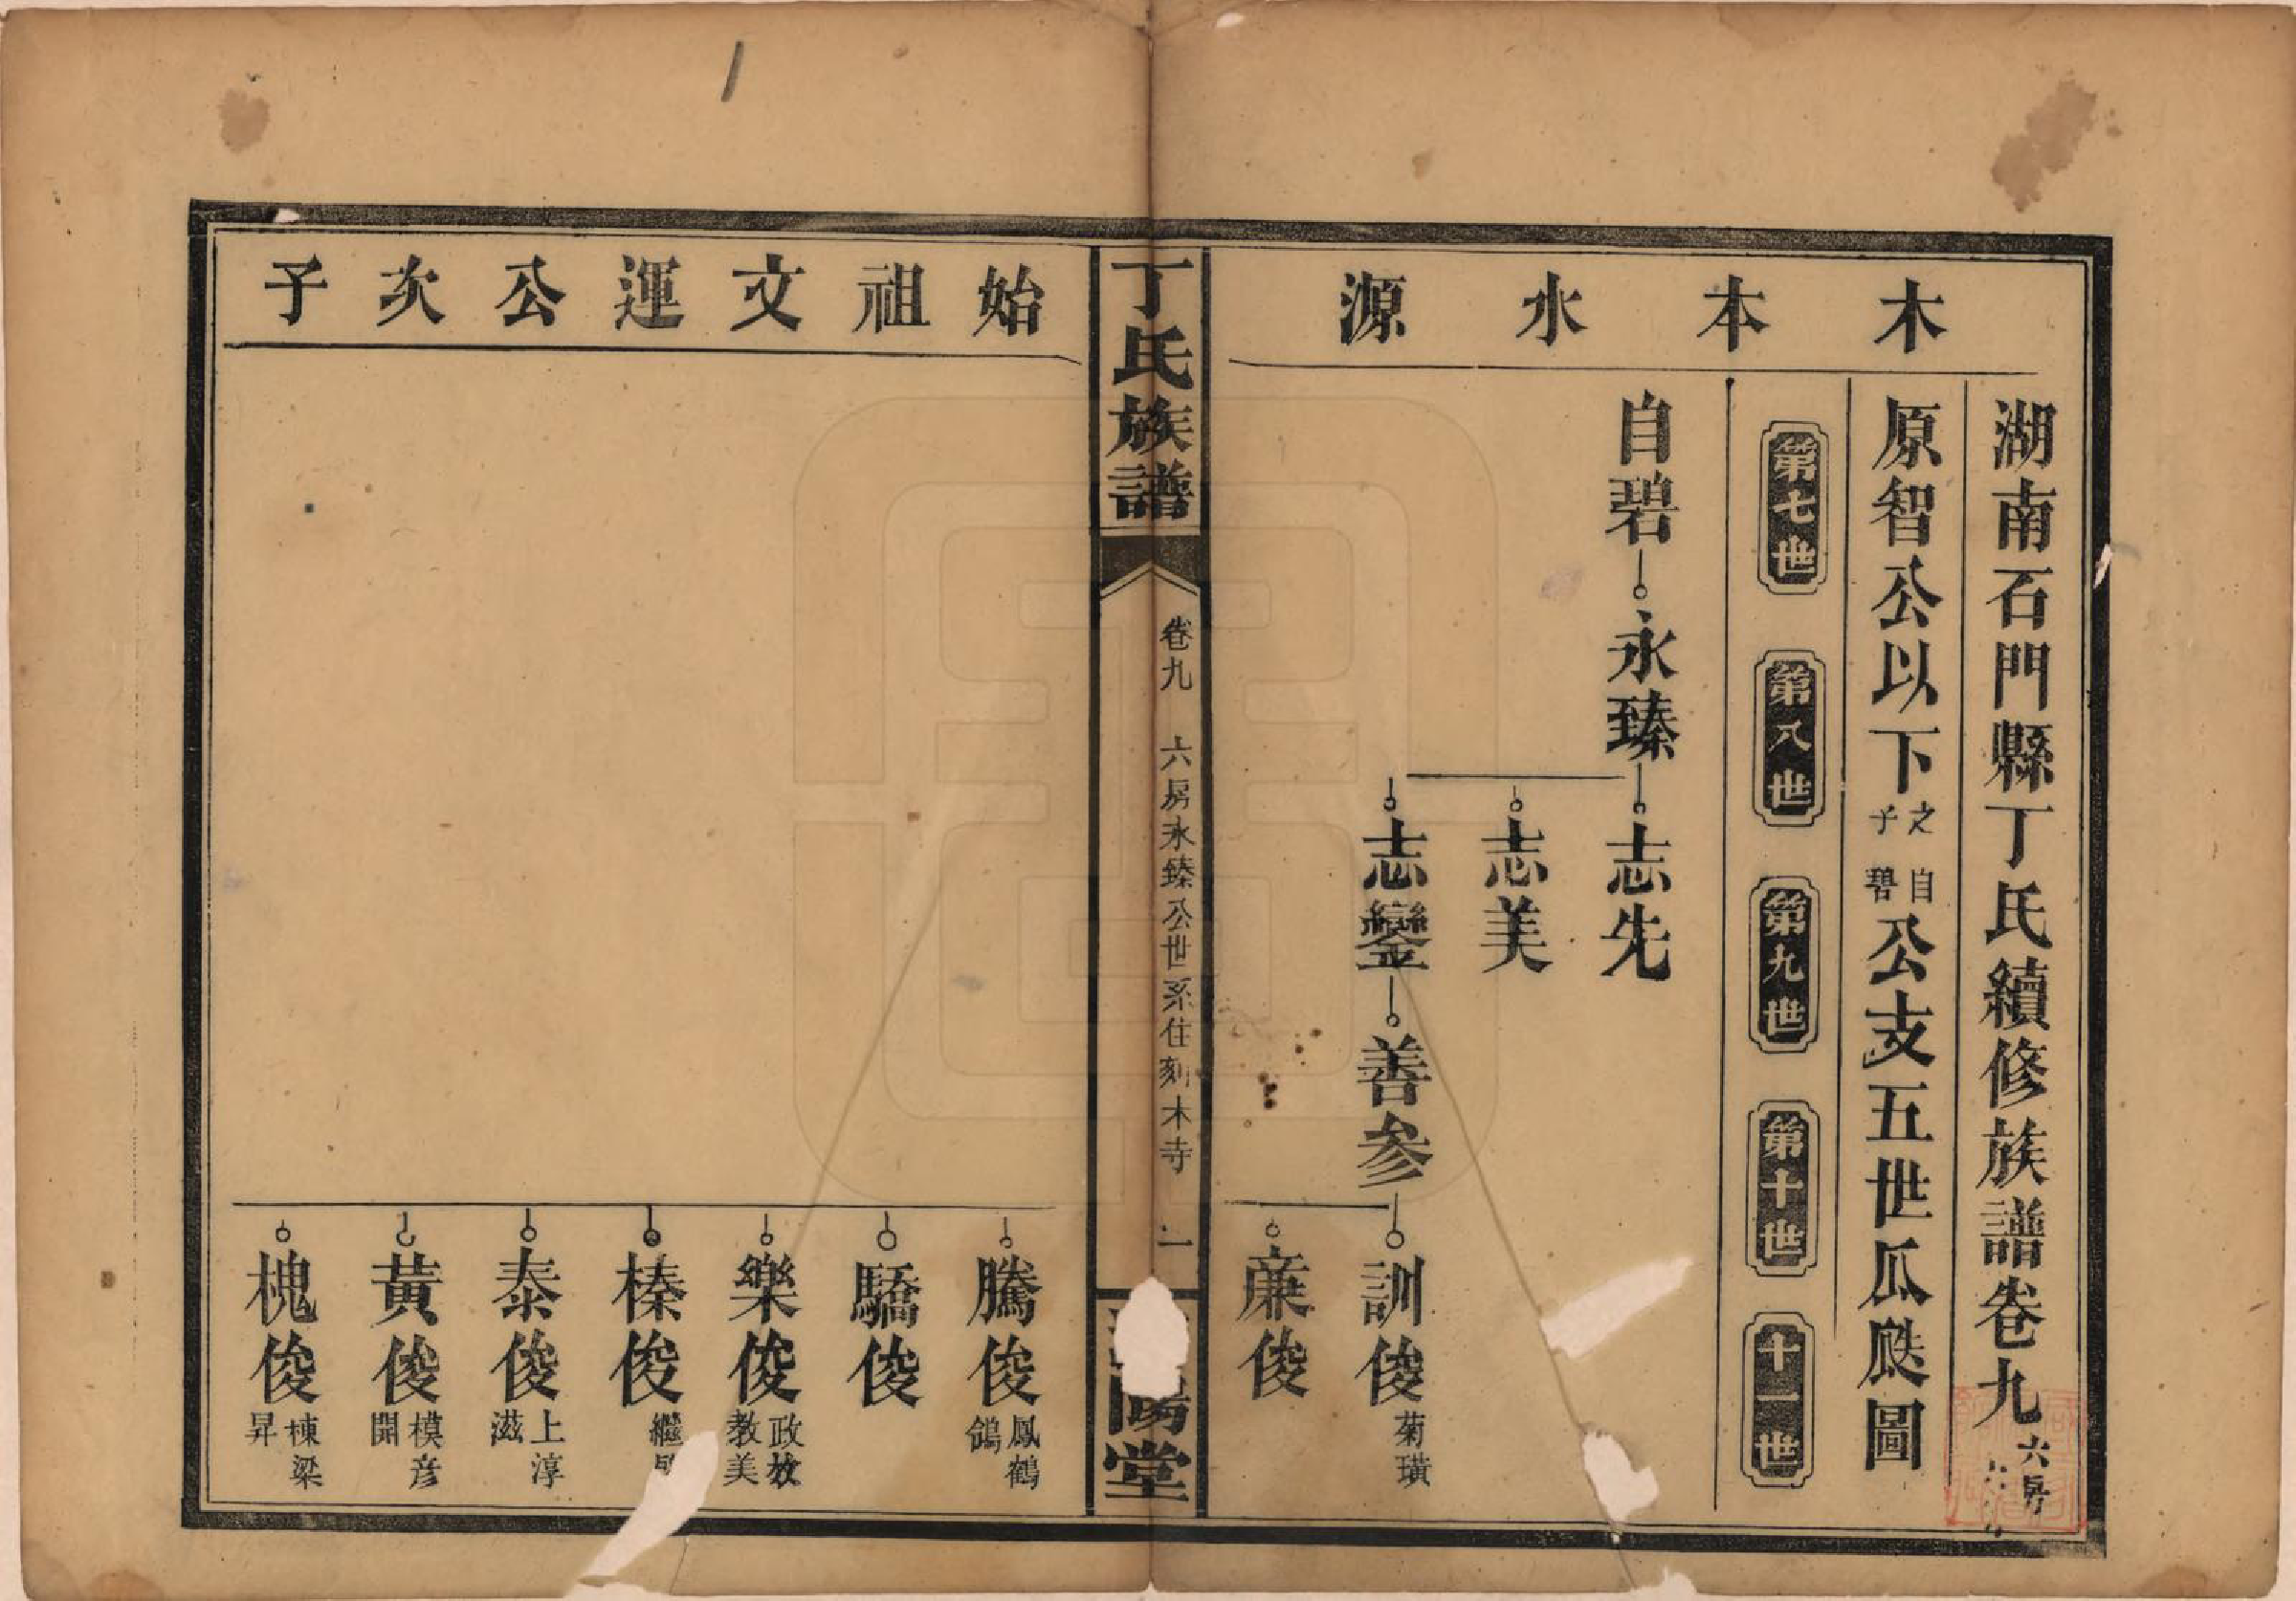 木本水源
湖南石門縣丁氏續修族譜卷九 六房
原智公以下之子自碧公支五世瓜瓞圖
第七世
第八世
第九世
第十世
十一世
自碧
永臻
志先
志美
志鑾
善參
訓俊 菊璜
㢘俊
丁氏族譜
卷九
六房永臻公世系住刻木寺
一
陽堂
始祖文運公次子
騰俊 鳳鶴鴿
驕俊
樂俊 政放教美
榛俊 繼
泰俊 上淳滋
黃俊 模彥開
槐俊 棟梁昇